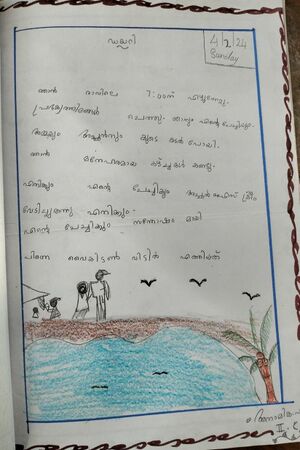 ഡയറി
4/2/24
Sunday
ഞാൻ രാവിലെ 7:00ന് എഴുന്നേറ്റു.
പ്രഭാതകൃത്യങ്ങൾ ചെയ്തു. ഞാനും എന്റെ ചേച്ചിയും
അമ്മയും അച്ഛനും കൂടെ കടൽ പോയി.
ഞാൻ മനോഹരമായ കാഴ്ചകൾ കണ്ടു.
എനിക്കും എന്റെ ചേച്ചിക്കും അച്ഛൻ ഐസ് ക്രീം
വേടിച്ചുതന്നു എനിക്കും
എന്റെ ചേച്ചിക്കും സന്തോഷം മായി
പിന്നെ വൈകിട്ട് വീട്ടിൽ എത്തിയത്
II. C